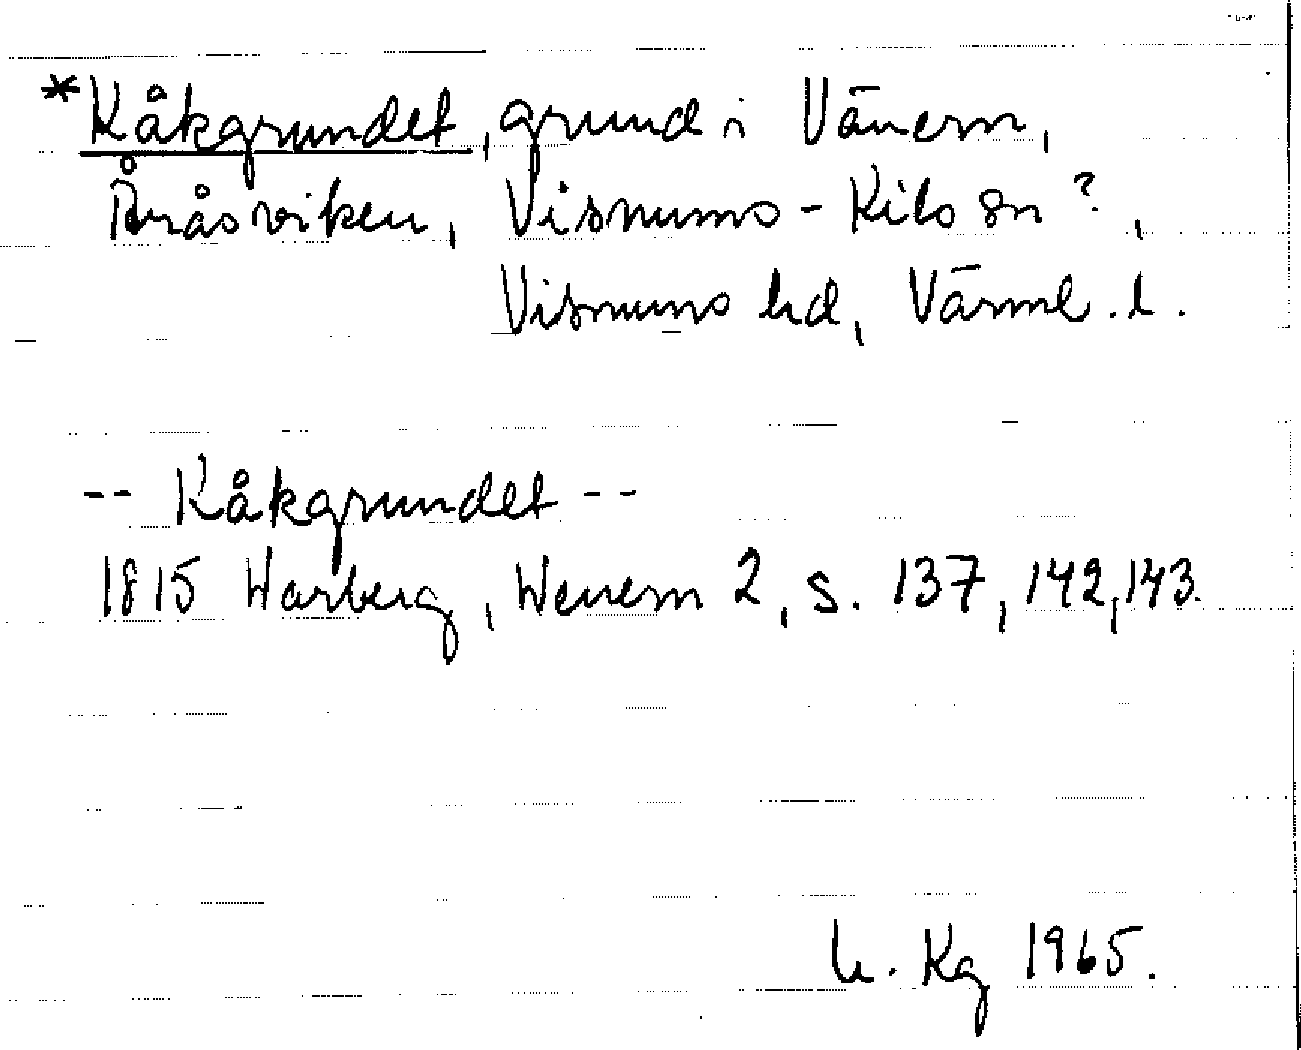 *Kåkgrundet, grund i Vänern,
Åråsviken, Visnums-Kils sn?,
Visnums hd, Värml. l.
-- Kåkgrundet --
1815 Warberg, Wenern 2, s. 137, 142, 143.
Kg 1965.